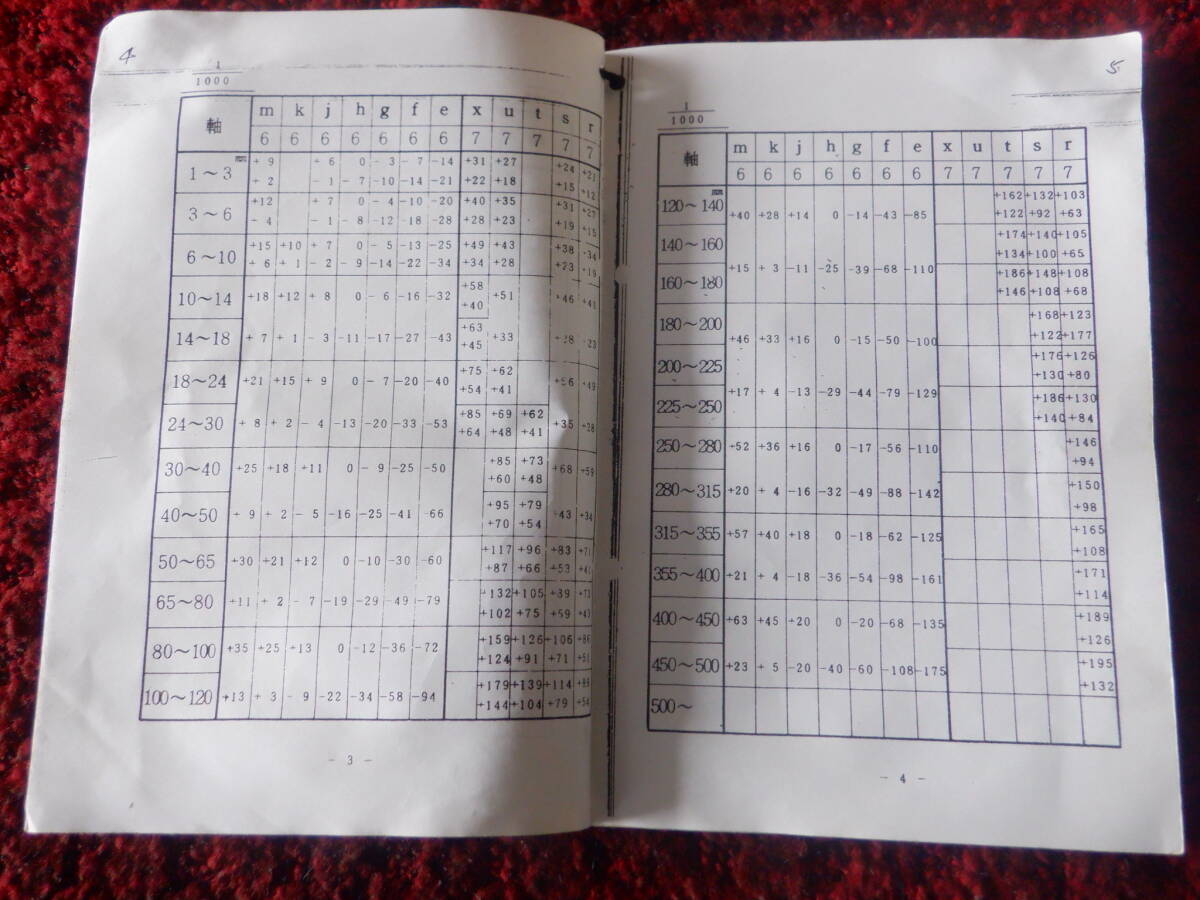 4
1
1000
軸 m k j h g f e x u t s r
6 6 6 6 6 6 6 7 7 7 7 7
1～3 +9 +6 0 -3 -7 -14 +31 +27 +24 +21
+2 -1 -7 -10 -14 -21 +22 +18 +15 +12
3～6 +12 0 -4 -10 -20 +40 +35 +31 +27
+4 -1 -8 -12 -18 -28 +28 +23 +19 +15
6～10 +15 +10 +7 0 -5 -13 -25 +49 +43 +38 +34
+6 +1 -2 -9 -14 -22 -34 +34 +28 +23 +19
10～14 +18 +12 +8 0 -6 -16 -32 +58 +51 +46 +41
+40
14～18 +7 +1 -3 -11 -17 -27 -43 +63 +33 +28 -23
+45
18～24 +21 +15 +9 0 -7 -20 -40 +75 +62 +56 +49
+54 +41
24～30 +8 +2 -4 -13 -20 -33 -53 +85 +69 +62 +35 +28
+64 +48 +41
30～40 +25 +18 +11 0 -9 -25 -50 +85 +73 +68 +59
+60 +48
40～50 +9 +2 -5 -16 -25 -41 -66 +95 +79 +43 +34
+70 +54
50～65 +30 +21 +12 0 -10 -30 -60 +117 +96 +83 +71
+87 +66 +53 +41
65～80 +11 +2 -7 -19 -29 -49 -79 +132 +105 +39 +73
+102 +75 +59 +43
80～100 +35 +25 +13 0 -12 -36 -72 +159 +126 +106 +86
+124 +91 +71 +51
100～120 +13 +3 -9 -22 -34 -58 -94 +179 +139 +114 +89
+144 +104 +79 +54
- 3 -
5
1
1000
軸 m k j h g f e x u t s r
6 6 6 6 6 6 6 7 7 7 7 7
120～140 +40 +28 +14 0 -14 -43 -85 +162 +132 +103
+122 +92 +63
140～160 +174 +140 +105
+134 +100 +65
160～180 +15 +3 -11 -25 -39 -68 -110 +186 +148 +108
+146 +108 +68
180～200 +46 +33 +16 0 -15 -50 -100 +168 +123
+122 +177
200～225 +176 +126
+130 +80
225～250 +17 +4 -13 -29 -44 -79 -129 +186 +130
+140 +84
250～280 +52 +36 +16 0 -17 -56 -110 +146
+94
280～315 +20 +4 -16 -32 -49 -88 -142 +150
+98
315～355 +57 +40 +18 0 -18 -62 -125 +165
+108
355～400 +21 +4 -18 -36 -54 -98 -161 +171
+114
400～450 +63 +45 +20 0 -20 -68 -135 +189
+126
450～500 +23 +5 -20 -40 -60 -108 -175 +195
+132
500～
- 4 -